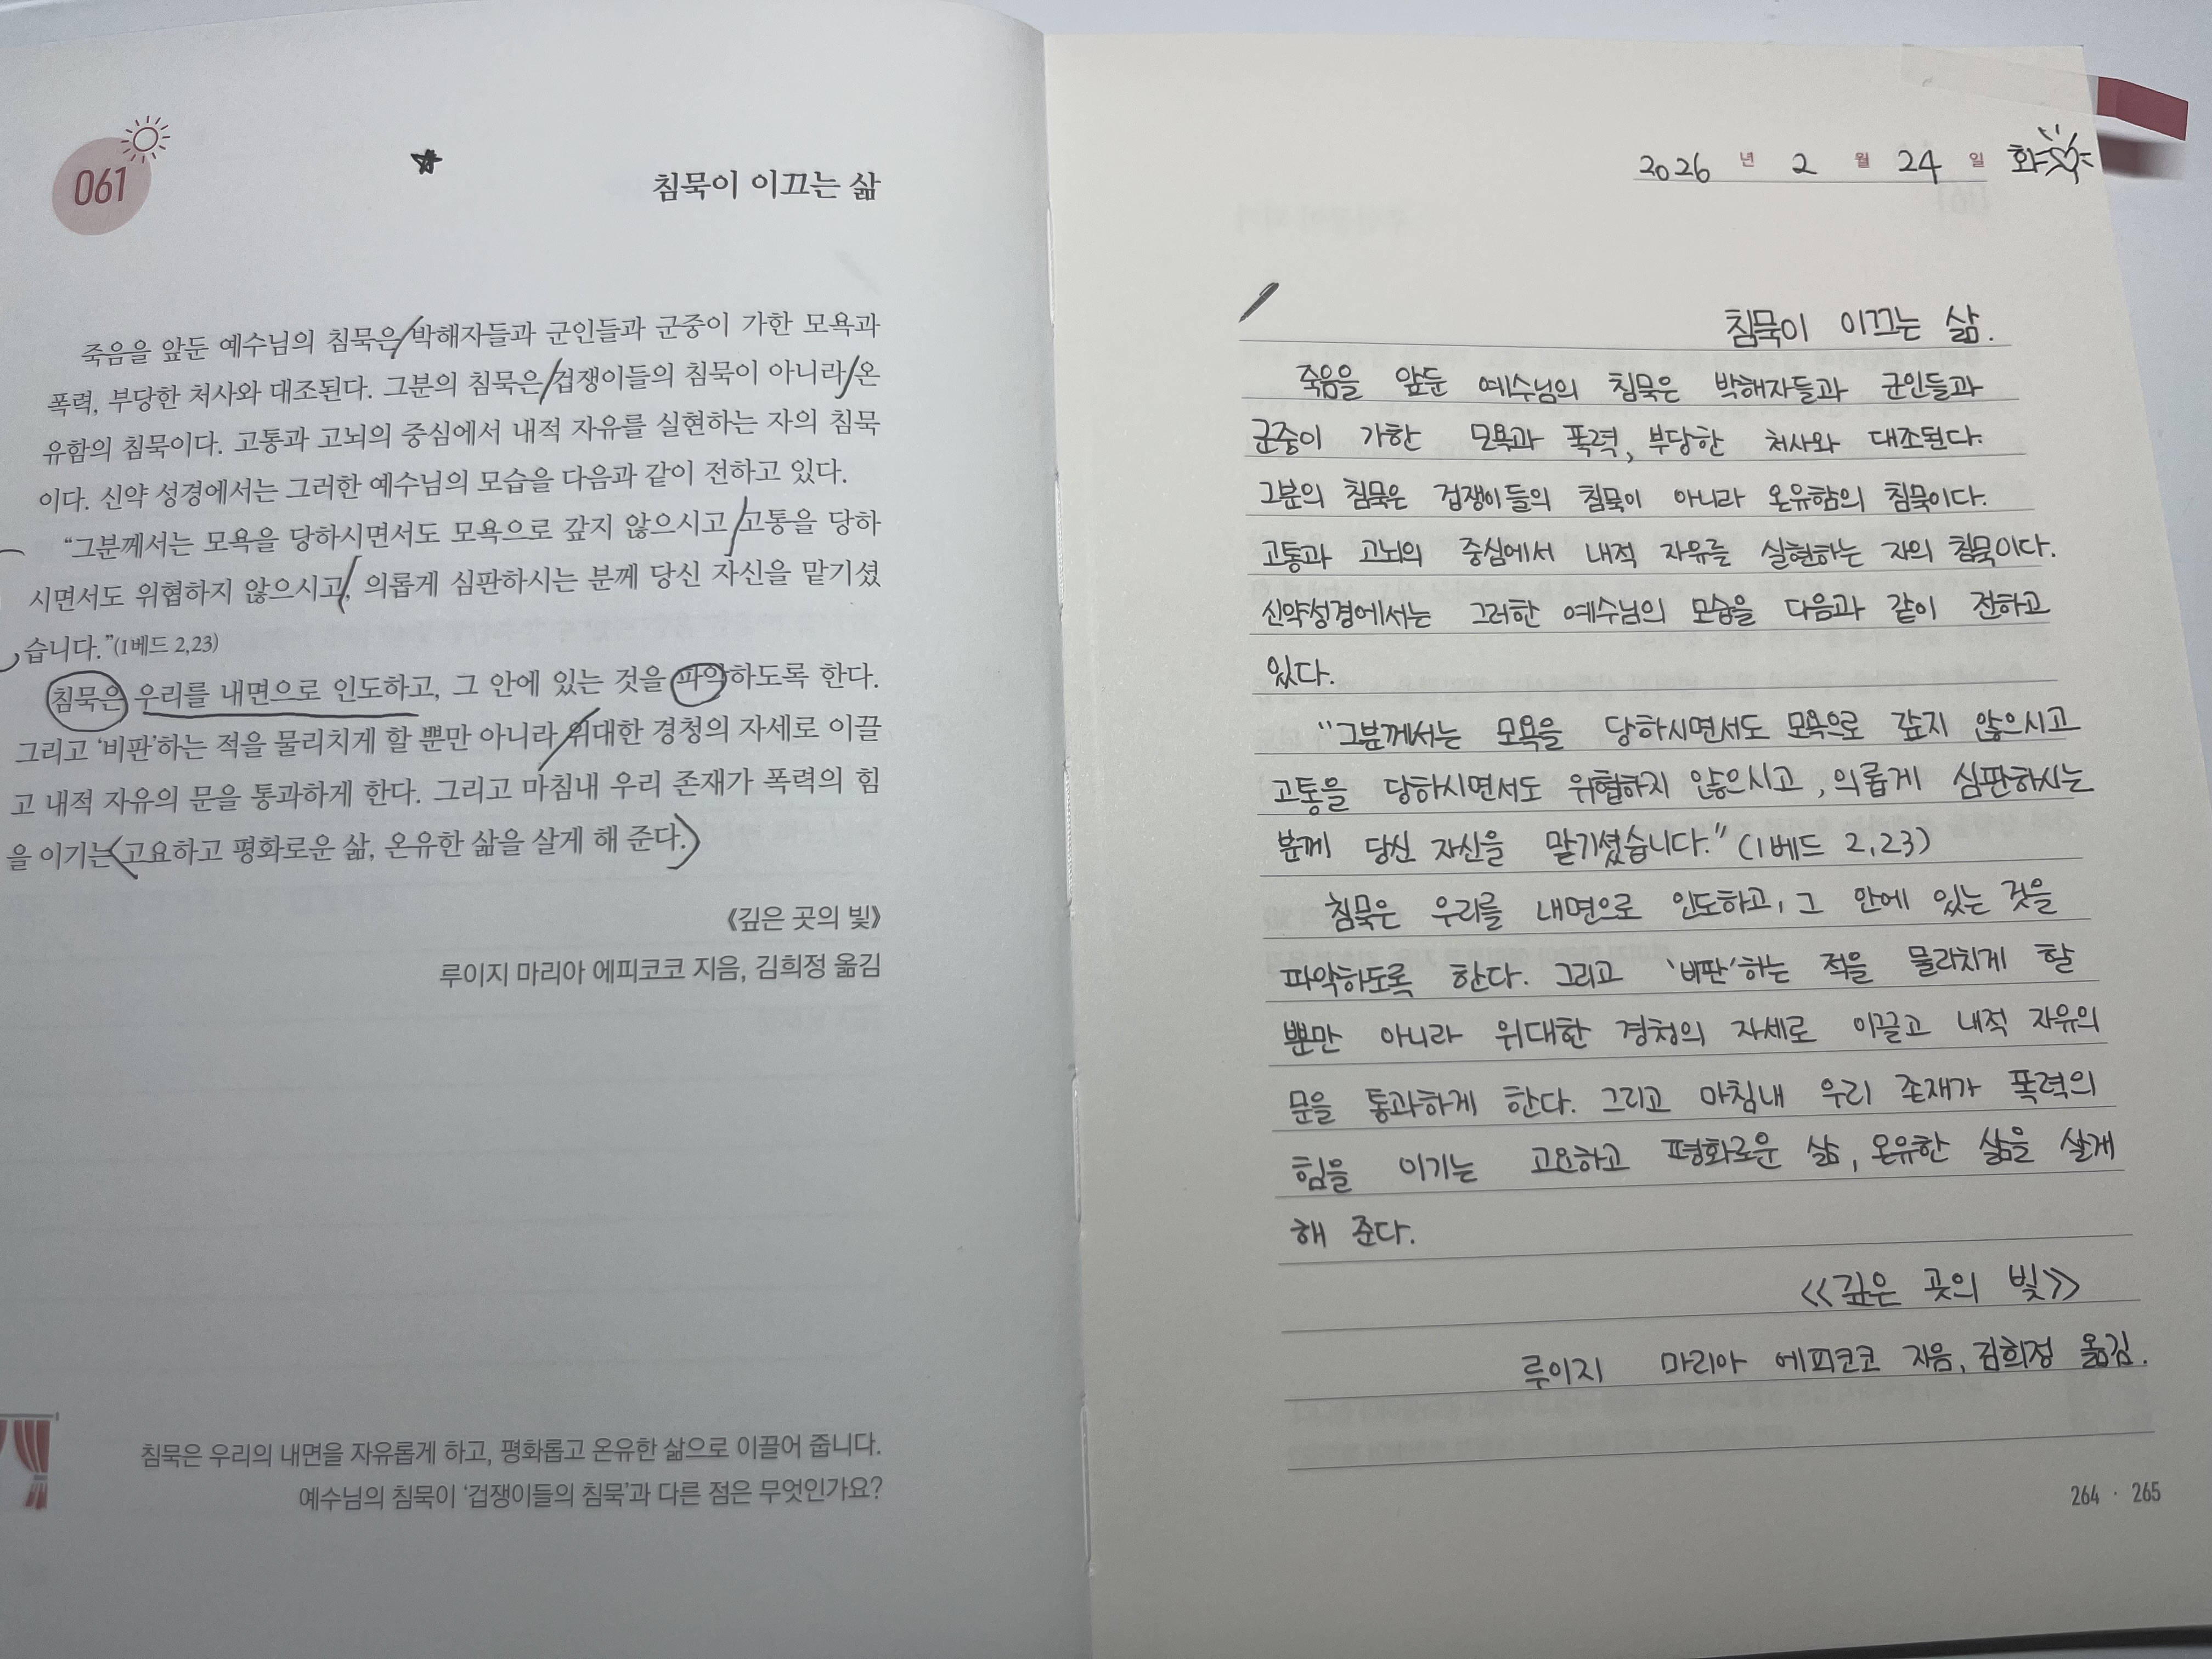 061
침묵이 이끄는 삶
죽음을 앞둔 예수님의 침묵은 박해자들과 군인들과 군중이 가한 모욕과
폭력, 부당한 처사와 대조된다. 그분의 침묵은 겁쟁이들의 침묵이 아니라 온
유함의 침묵이다. 고통과 고뇌의 중심에서 내적 자유를 실현하는 자의 침묵
이다. 신약 성경에서는 그러한 예수님의 모습을 다음과 같이 전하고 있다.
“그분께서는 모욕을 당하시면서도 모욕으로 갚지 않으시고 고통을 당하
시면서도 위협하지 않으시고, 의롭게 심판하시는 분께 당신 자신을 맡기셨
습니다.”(1베드 2,23)
침묵은 우리를 내면으로 인도하고, 그 안에 있는 것을 파악하도록 한다.
그리고 ‘비판’하는 적을 물리치게 할 뿐만 아니라 위대한 경청의 자세로 이끌
고 내적 자유의 문을 통과하게 한다. 그리고 마침내 우리 존재가 폭력의 힘
을 이기는 고요하고 평화로운 삶, 온유한 삶을 살게 해 준다.
《깊은 곳의 빛》
루이지 마리아 에피코코 지음, 김희정 옮김
침묵은 우리의 내면을 자유롭게 하고, 평화롭고 온유한 삶으로 이끌어 줍니다.
예수님의 침묵이 ‘겁쟁이들의 침묵’과 다른 점은 무엇인가요?
2026 년 2 월 24 일 화
침묵이 이끄는 삶.
죽음을 앞둔 예수님의 침묵은 박해자들과 군인들과
군중이 가한 모욕과 폭력, 부당한 처사와 대조된다.
그분의 침묵은 겁쟁이들의 침묵이 아니라 온유함의 침묵이다.
고통과 고뇌의 중심에서 내적 자유를 실현하는 자의 침묵이다.
신약성경에서는 그러한 예수님의 모습을 다음과 같이 전하고
있다.
"그분께서는 모욕을 당하시면서도 모욕으로 갚지 않으시고
고통을 당하시면서도 위협하지 않으시고, 의롭게 심판하시는
분께 당신 자신을 맡기셨습니다." (1베드 2,23)
침묵은 우리를 내면으로 인도하고, 그 안에 있는 것을
파악하도록 한다. 그리고 '비판'하는 적을 물리치게 할
뿐만 아니라 위대한 경청의 자세로 이끌고 내적 자유의
문을 통과하게 한다. 그리고 마침내 우리 존재가 폭력의
힘을 이기는 고요하고 평화로운 삶, 온유한 삶을 살게
해 준다.
<<깊은 곳의 빛>>
루이지 마리아 에피코코 지음, 김희정 옮김.
264 · 265